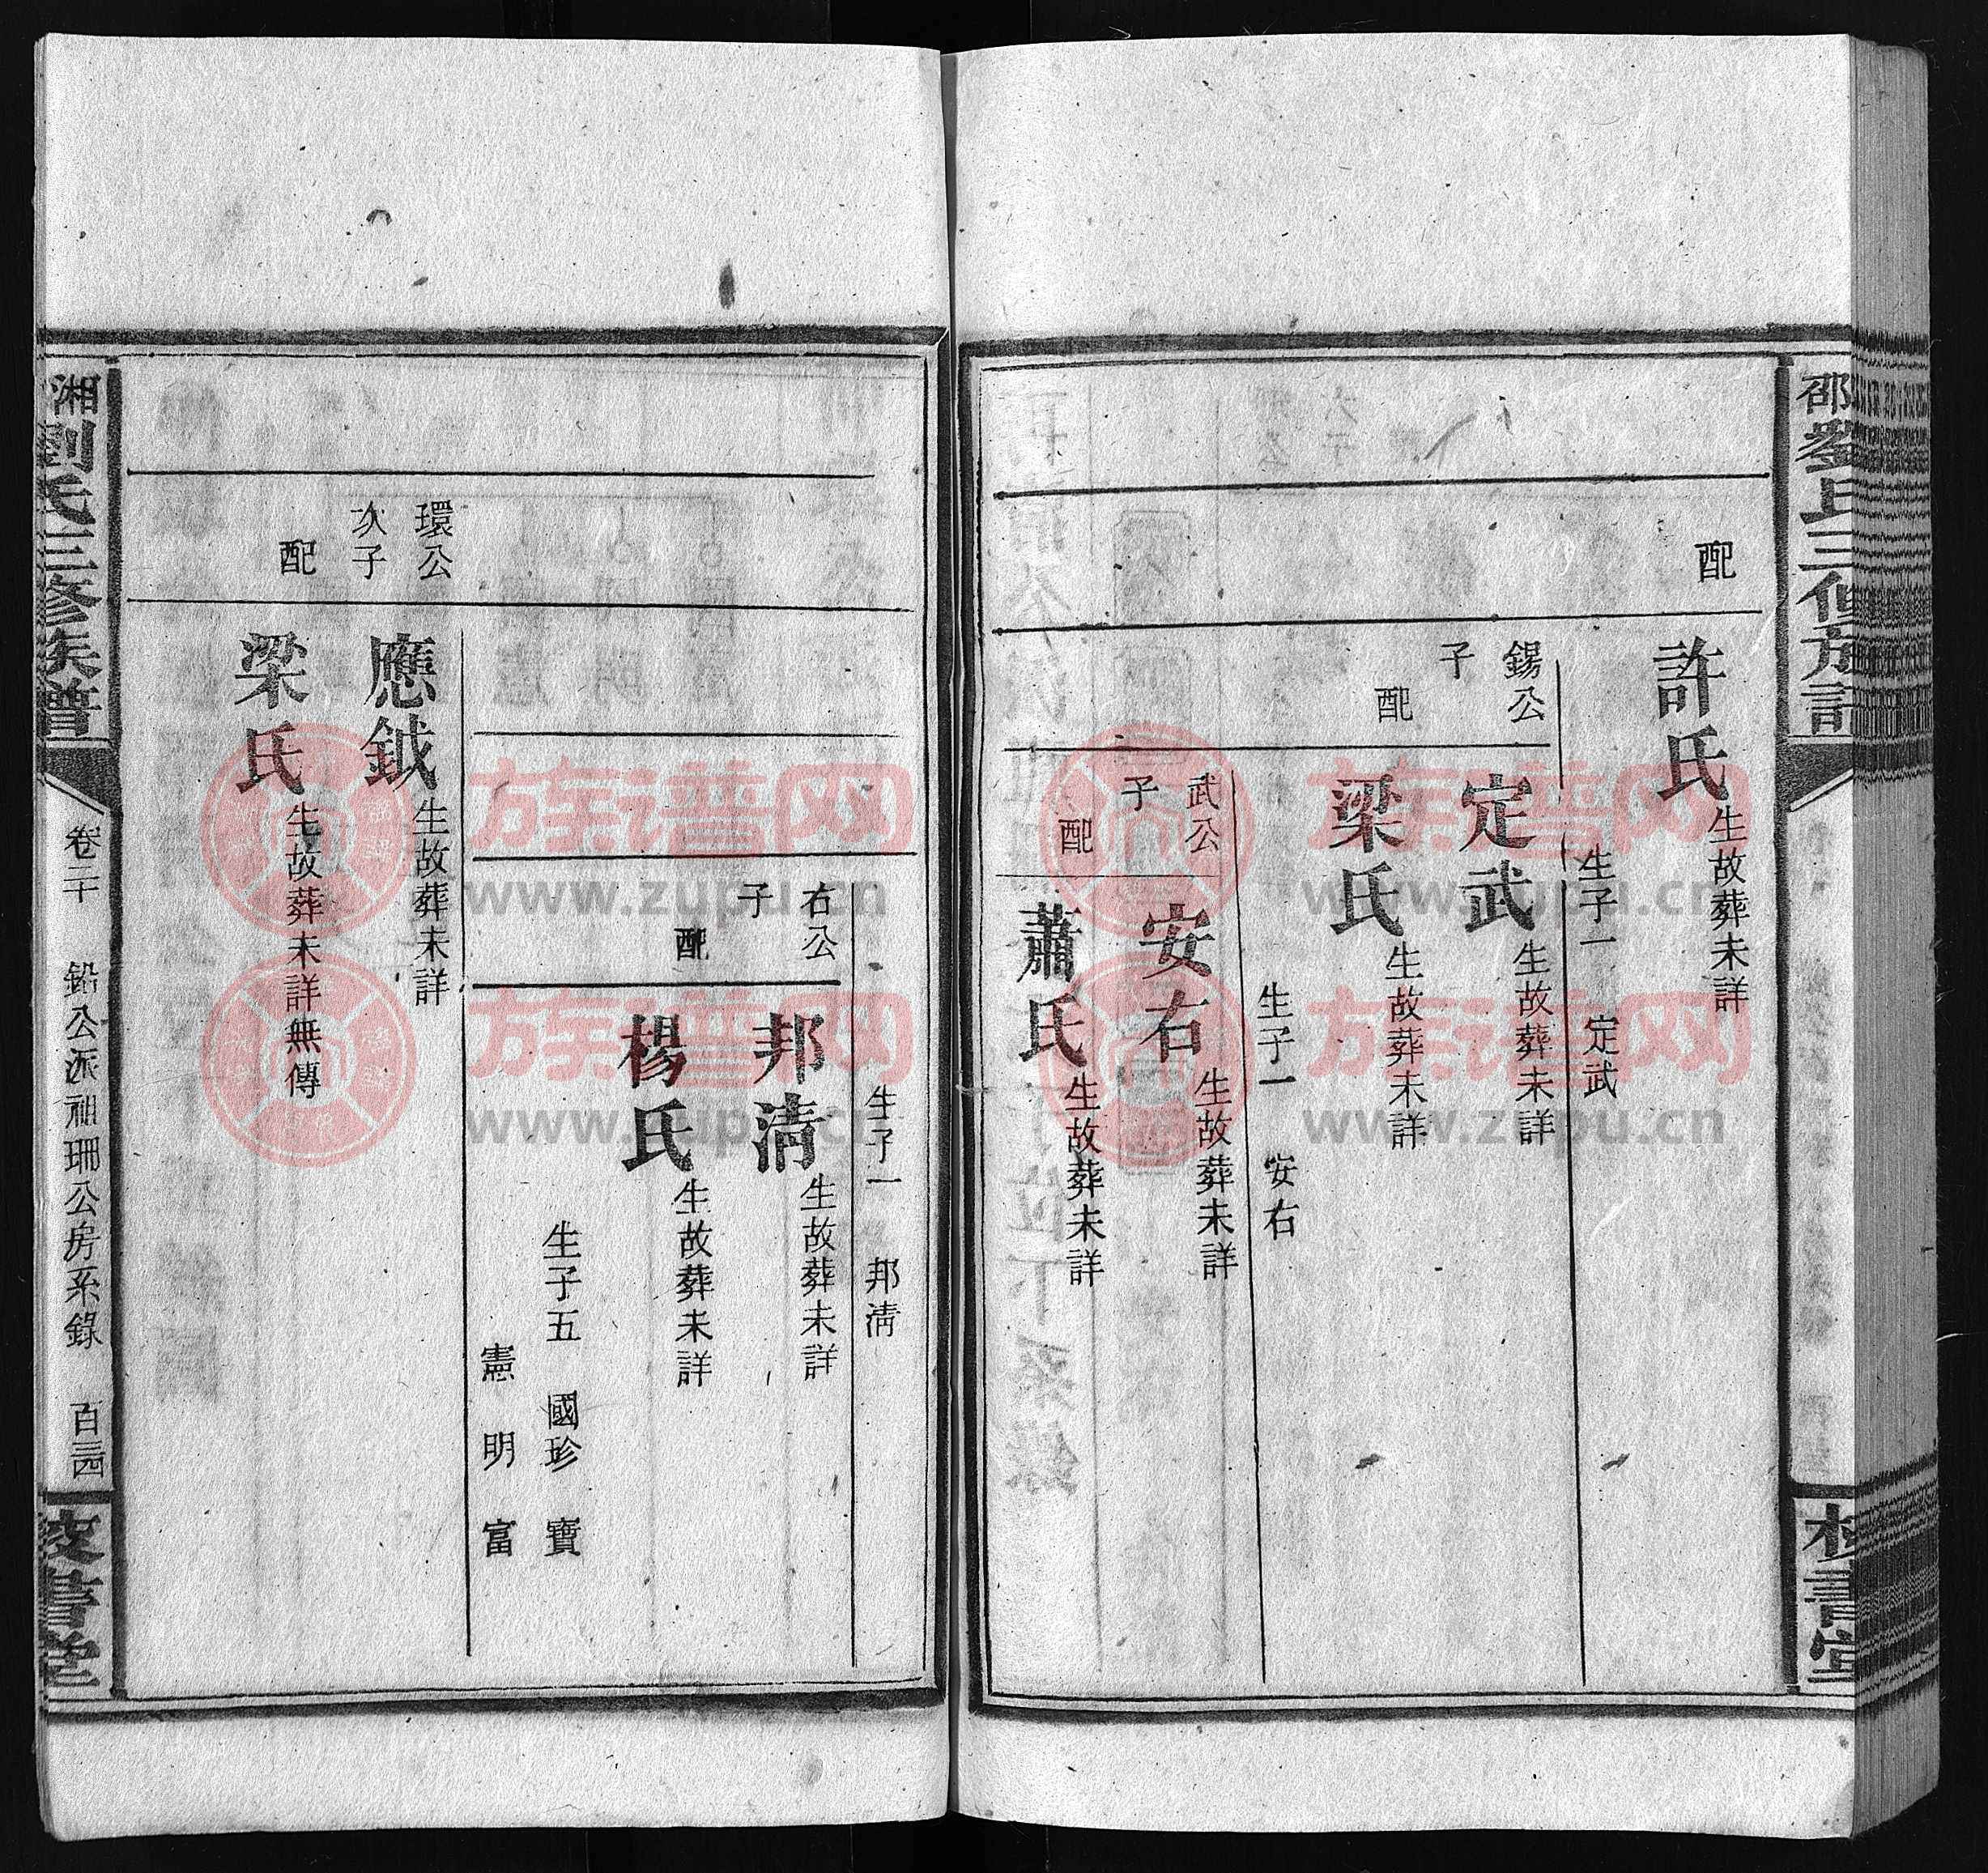 邵劉氏三修族譜
校書堂
配
許氏
生故葬未詳
生子一 定武
錫公
子
定武
生故葬未詳
配
梁氏
生故葬未詳
生子一 安右
武公
子
安右
生故葬未詳
配
蕭氏
生故葬未詳
生子一 邦清
右公
子
邦清
生故葬未詳
配
楊氏
生故葬未詳
生子五 國珍 寶
憲 明 富
環公
次子
應鉞
生故葬未詳
配
梁氏
生故葬未詳無傳
湘劉氏三修族譜
卷二十 鉛公派祖珊公房系錄 百三四
校書堂
族谱网
www.zupu.cn
族谱网
www.zupu.cn
族谱网
www.zupu.cn
族谱网
www.zupu.cn